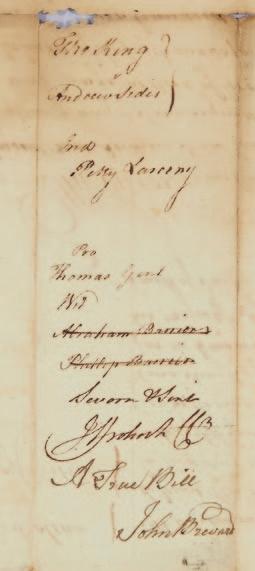 The King }
v
Andrew Sides }
Ind
Petty Larceny
Pro
Thomas
Wit
Abraham Barrier
Phillip Barrier
Sworn & Sent
A True Bill
John Brevard